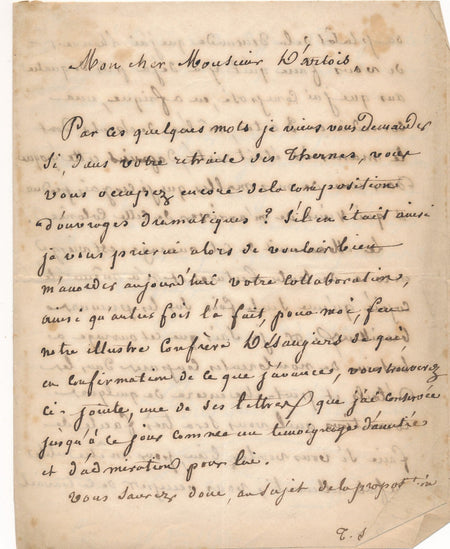 Mon cher Monsieur D'artois,
Par ces quelques mots je viens vous demander
si, dans votre retraite des Thernes, vous
vous occupez encore de la composition
d'ouvrages dramatiques? S'il en était ainsi
je vous prierai alors de vouloir bien
m'accorder aujourd'hui votre collaboration,
ainsi qu'autrefois l'a fait, pour moi, feu
notre illustre confrère Désaugiers de qui
en confirmation de ce que j'avance, vous trouverez
ci-jointe, une de ses lettres que j'ai conservée
jusqu'à ce jour comme un témoignage d'amitié
et d'admiration pour lui.
Vous saurez donc, au sujet de la propos^tion
T. S